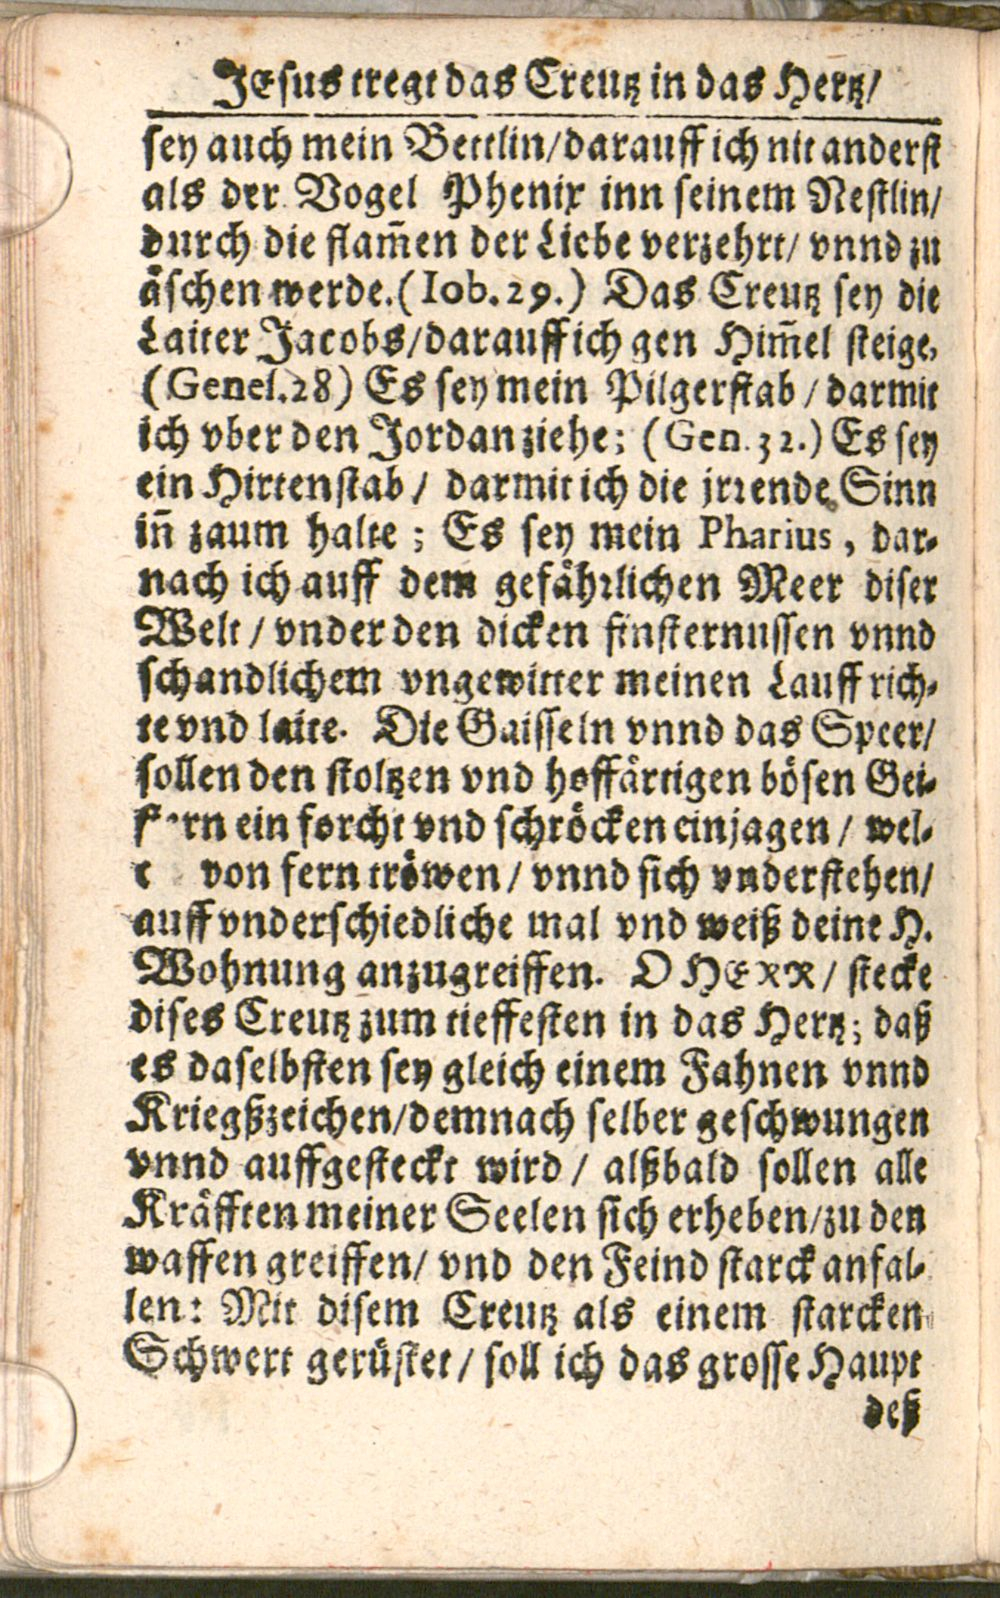 JEsus tregt das Creutz in das Hertz/
sey auch mein Bettlin/darauff ich nit anderst
als der Vogel Phenix inn seinem Nestlin/
durch die flam̄en der Liebe verzehrt/ vnnd zu
äschen werde.(Iob.29.) Das Creutz sey die
Laiter Jacobs/darauff ich gen Him̄el steige,
(Genes.28) Es sey mein Pilgerstab / darmit
ich vber den Jordan ziehe; (Gen.32.) Es sey
ein Hirtenstab / darmit ich die jrrende Sinn
in̄ zaum halte ; Es sey mein Pharius , dar-
nach ich auff dem gefährlichen Meer diser
Welt / vnder den dicken finsternussen vnnd
schandlichem vngewitter meinen Lauff rich-
te vnd laite. Die Gaisseln vnnd das Speer/
sollen den stoltzen vnd hoffärtigen bösen Gei-
ein forcht vnd schröcken einjagen / wel-
von fern tröwen / vnnd sich vnderstehen/
auff vnderschiedliche mal vnd weiß deine H.
Wohnung anzugreiffen. O HERR / stecke
dises Creutz zum tieffesten in das Hertz; daß
es daselbsten sey gleich einem Fahnen vnnd
Kriegßzeichen/demnach selber geschwungen
vnnd auffgesteckt wird / alßbald sollen alle
Kräfften meiner Seelen sich erheben/zu den
waffen greiffen/ vnd den Feind starck anfal-
len: Mit disem Creutz als einem starcken
Schwert gerüstet / soll ich das grosse Haupt
deß